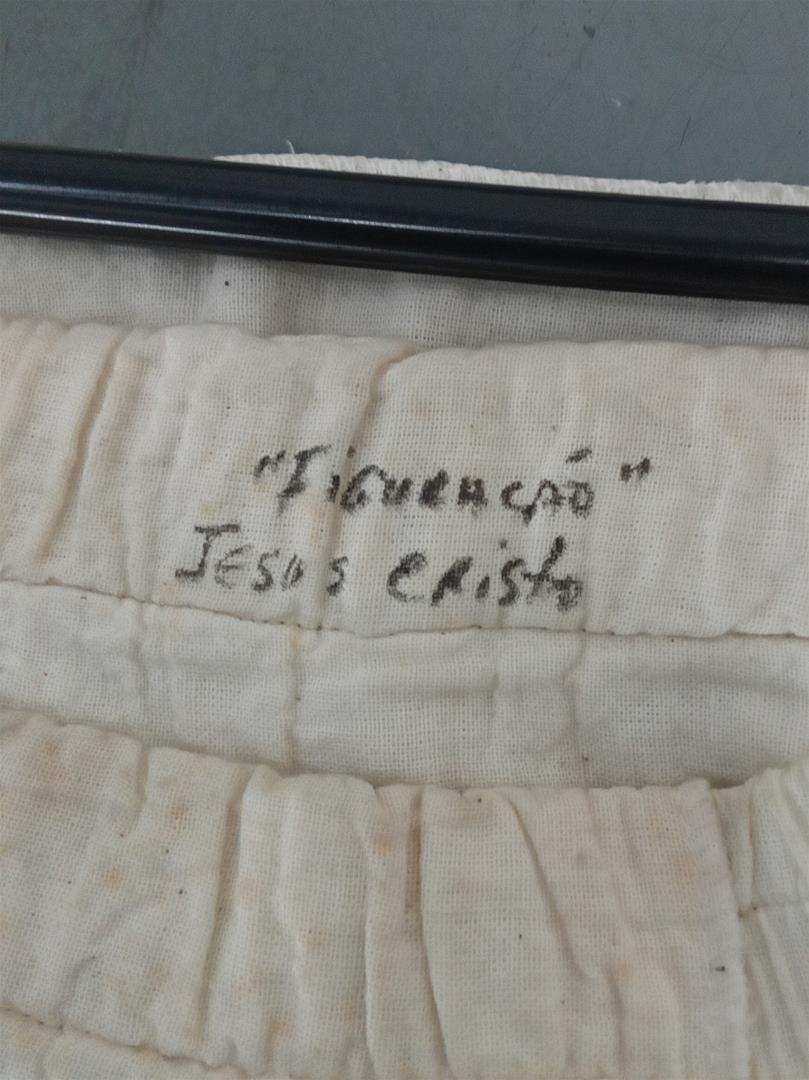 "FIGURAÇÃO"
JESUS CRISTO